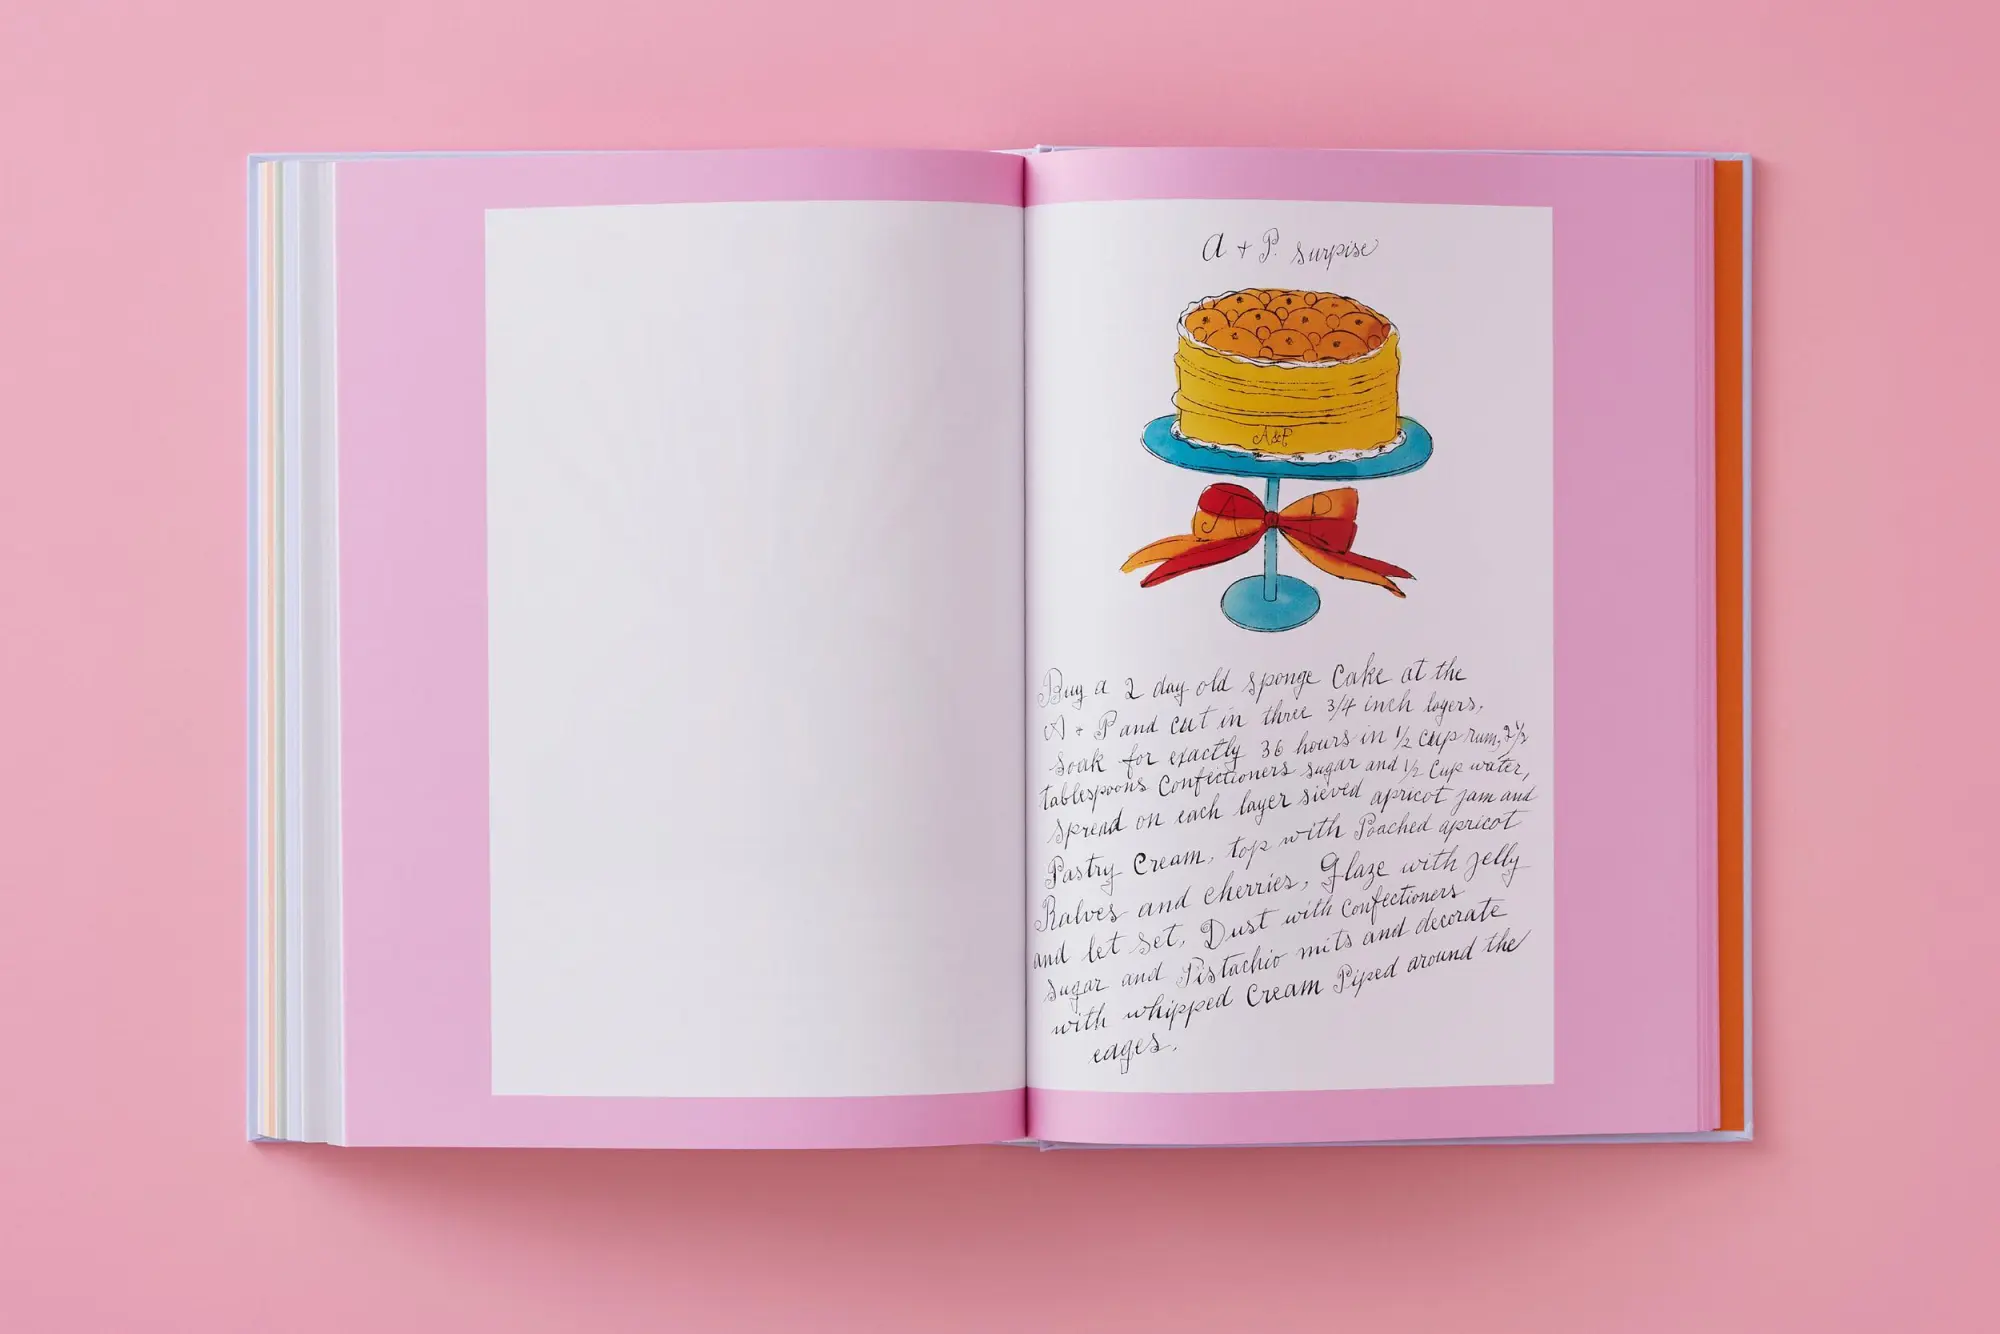 A + P. surpise
A&P
A P
Buy a 2 day old sponge Cake at the
A + P and cut in three 3/4 inch layers,
soak for exactly 36 hours in 1/2 cup rum, 2 1/2
tablespoons Confectioners sugar and 1/2 Cup water,
spread on each layer sieved apricot jam and
Pastry Cream, top with Poached apricot
Halves and cherries, Glaze with jelly
and let set, Dust with Confectioners
sugar and Pistachio nuts and decorate
with whipped Cream Piped around the
edges.